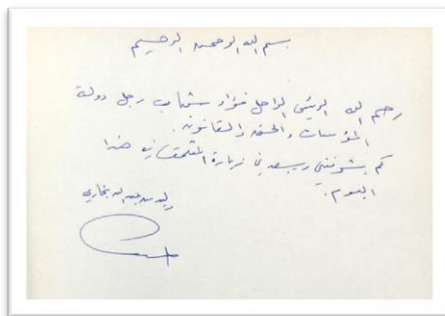 بسم الله الرحمن الرحيم
رحم الله الرئيس الراحل فؤاد شهاب رجل دولة
المؤسسات والحق والقانون.
كم يشرفني ويسعدني زيارة المتحف في هذا
اليوم.
وليد عبد الله بخاري